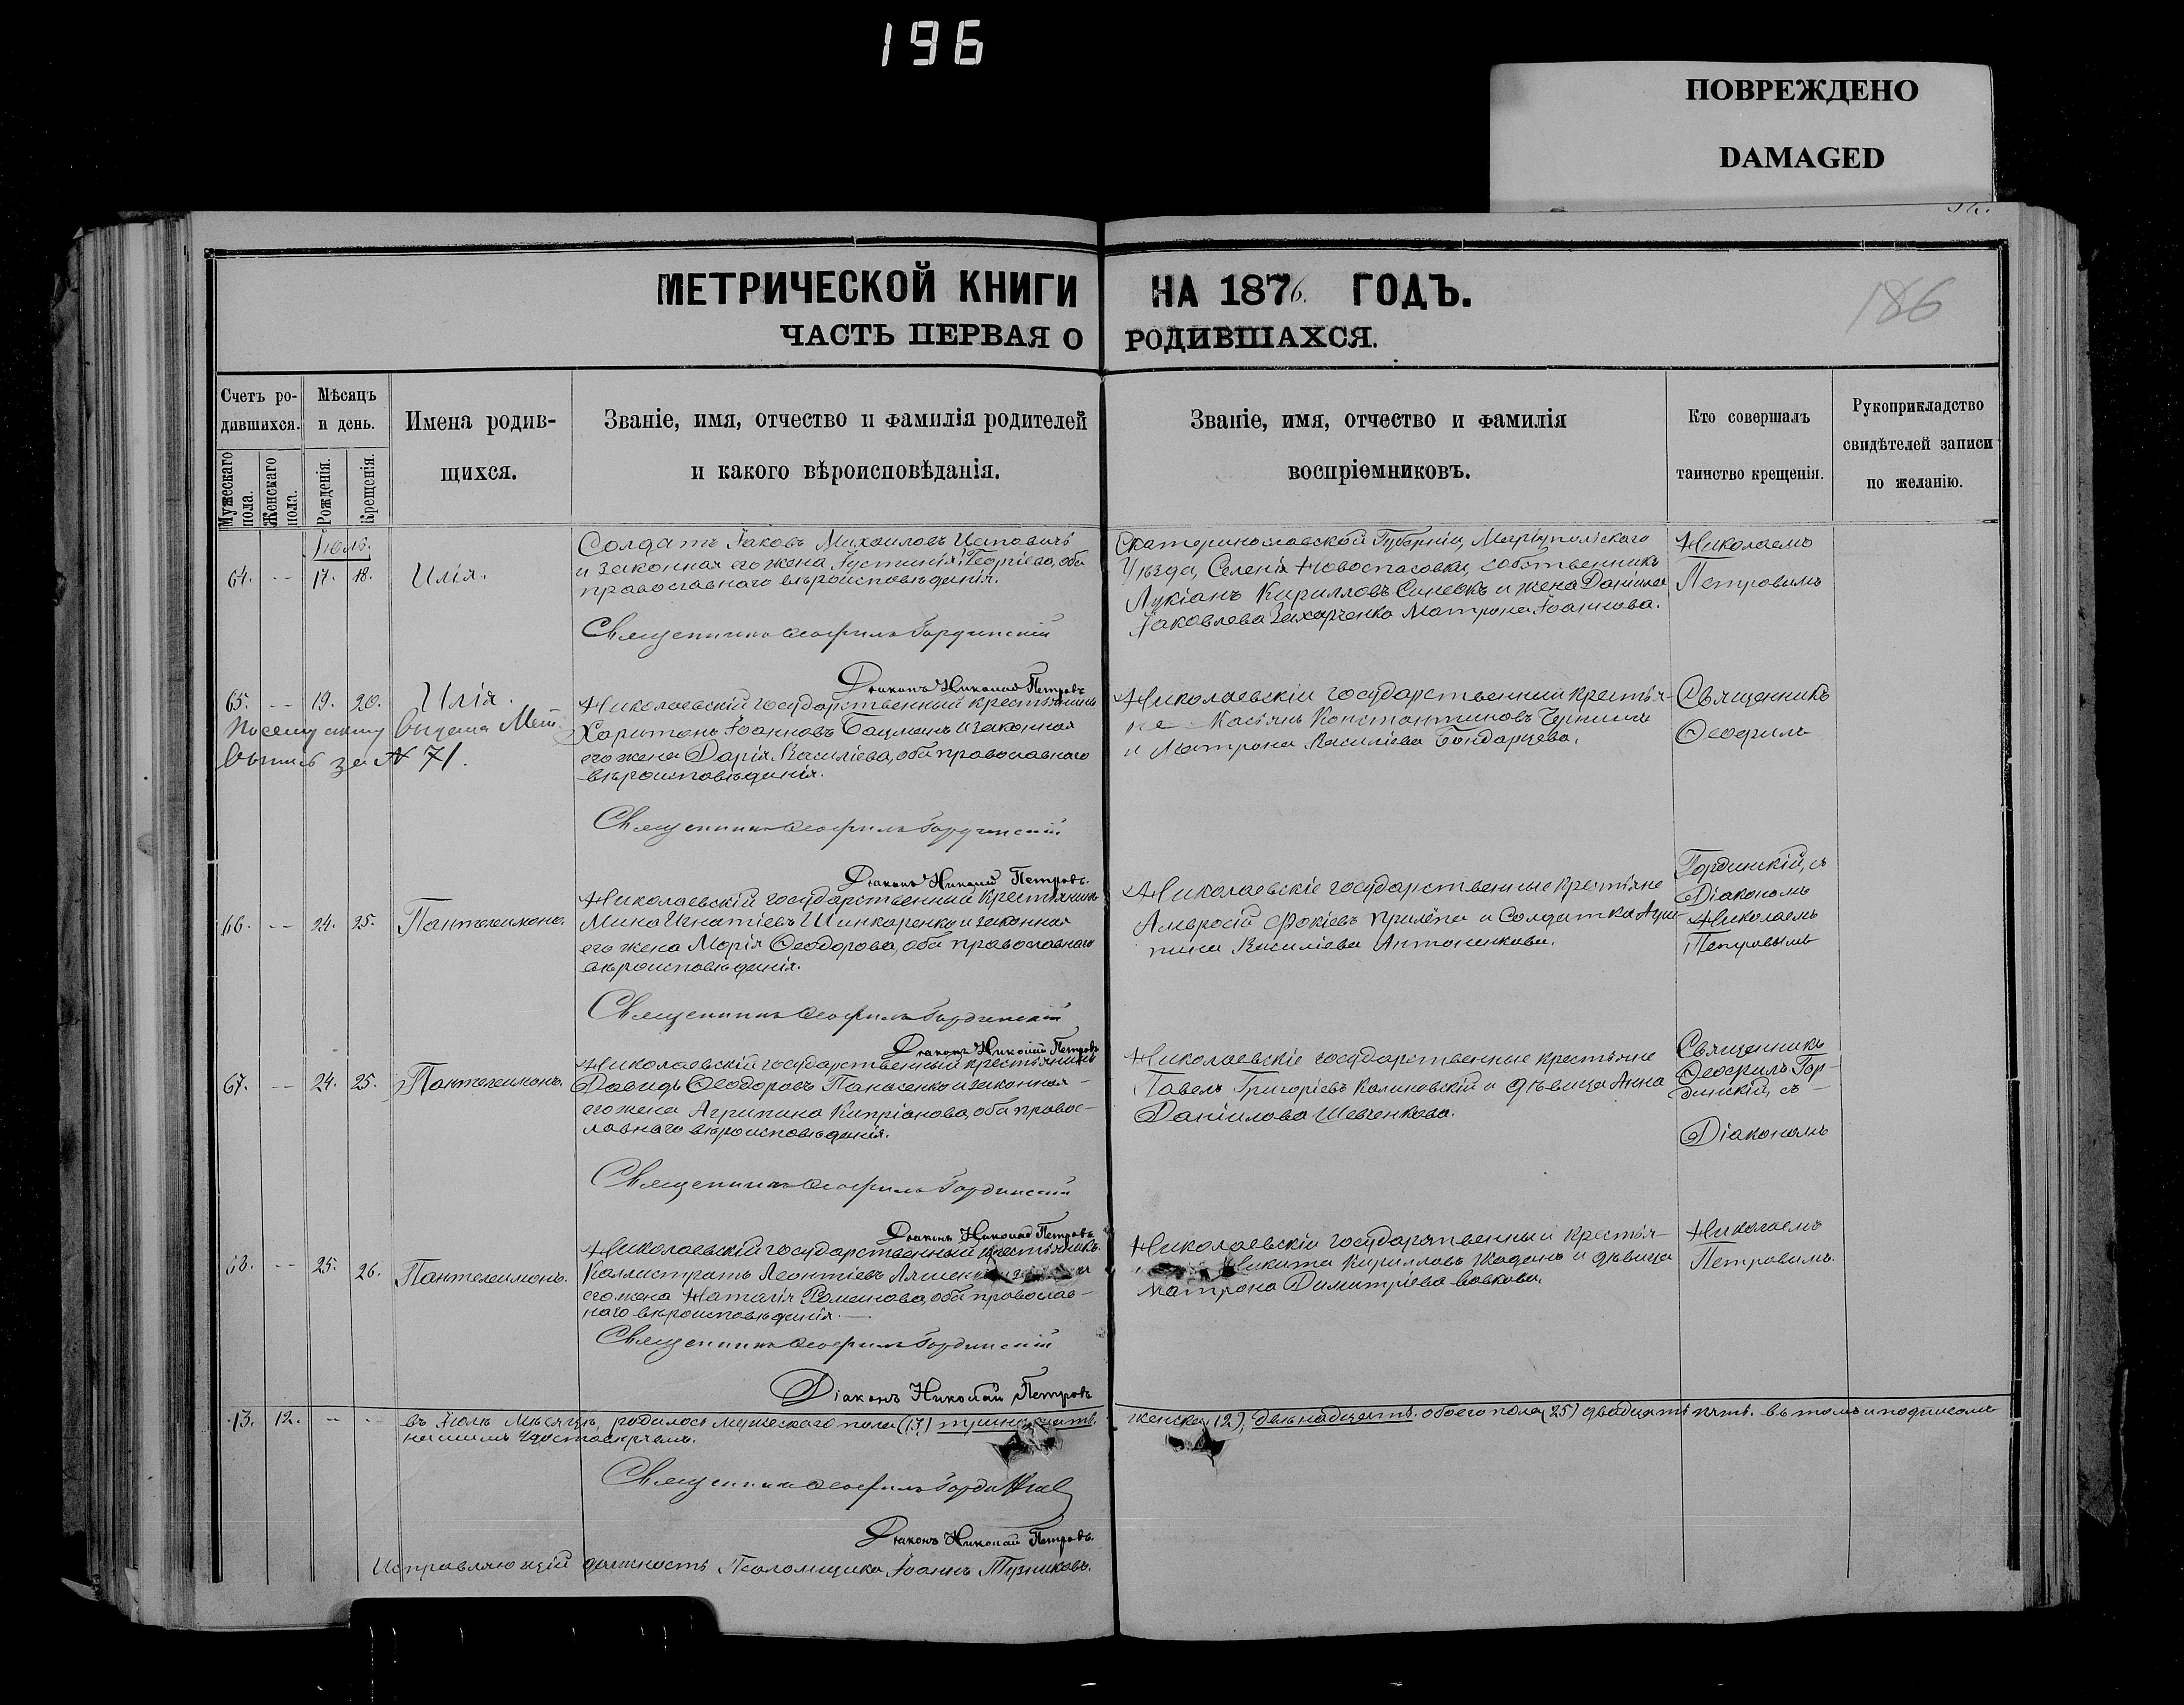 196
ПОВРЕЖДЕНО
DAMAGED
МЕТРИЧЕСКОЙ КНИГИ НА 1876. ГОДЪ.
186
ЧАСТЬ ПЕРВАЯ О РОДИВШАХСЯ.
Счетъ ро-
дившихся.
Мужескаго пола.
Женскаго пола.
Мѣсяцъ
и день.
Рожденія.
Крещенія.
Имена родив-
щихся.
Званіе, имя, отчество и фамилія родителей
и какого вѣроисповѣданія.
Званіе, имя, отчество и фамилія
воспріемниковъ.
Кто совершалъ
таинство крещенія.
Рукоприкладство
свидѣтелей записи
по желанію.
Іюль.
64. -- 17. 18. Илія.
Солдатъ Іаковъ Михаиловъ
и законная его жена Іустинія Георгіева, оба
православнаго вѣроисповѣданія.
Священникъ Ѳеофилъ Гординскій
Діаконъ Николай Петровъ
Екатеринославской Губерніи, Маріупольскаго
Уѣзда, Селенія Новоспасовки, собственникъ
Лукіанъ Кирилловъ и жена Даніила
Іаковлева Захарченко Матрона Іоаннова.
Николаемъ
Петровымъ
65. -- 19. 20. Илія.
По сему акту выдана Мет.
Выпись за № 71.
Николаевскій государственный крестьянинъ
Харитонъ Іоанновъ Бацманъ и законная
его жена Дарія Василіева, оба православнаго
вѣроисповѣданія.
Священникъ Ѳеофилъ Гординскій
Діаконъ Николай Петровъ.
Николаевскіи государственныи крестья-
не Касіянъ Константиновъ
и Матрона Василіева Бондарцева.
Священникъ
Ѳеофилъ
Гординскій, съ
Діакономъ
Николаемъ
Петровымъ
66. -- 24. 25. Пантелеимонъ.
Николаевскій государственный крестьянинъ
Мина Игнатіевъ Шинкаренко и законная
его жена Марія Ѳеодорова, оба православнаго
вѣроисповѣданія.
Священникъ Ѳеофилъ Гординскій
Діаконъ Николай Петровъ
Николаевскіе государственные крестьяне
Амвросій Фокіевъ Прилѣпа и Солдатка Агри-
пина Василіева Антоненкова.
67. -- 24. 25. Пантелеимонъ.
Николаевскій государственный крестьянинъ
Давидъ Ѳеодоровъ Панасенко и законная
его жена Агрипина Кипріанова, оба правос-
лавнаго вѣроисповѣданія.
Священникъ Ѳеофилъ Гординскій
Діаконъ Николай Петровъ
Николаевскіе государственные крестьяне
Павелъ Григоріевъ Калиновскій и дѣвица Анна
Даніилова Шевченкова.
Священникъ
Ѳеофилъ Гор-
динскій, съ
Діакономъ
68. -- 25. 26. Пантелеимонъ.
Николаевскій государственный крестьянинъ
Каллистратъ Леонтіевъ
его жена Наталія Романова, оба православ-
наго вѣроисповѣданія.
Священникъ Ѳеофилъ Гординскій
Діаконъ Николай Петровъ
Николаевскіи государственныи крестья-
Никита Кирилловъ Жаданъ и дѣвица
Матрона Димитріева Вовкова.
Николаемъ
Петровымъ.
13. 12. -- -- въ Іюль мѣсяцѣ, родилось мужескаго пола (13) тринадцать. женска (12), двѣнадцать. обоего пола (25) двадцать пять. въ томъ и подписомъ
нашимъ удостовѣряемъ.
Священникъ Ѳеофилъ Гординскій
Діаконъ Николай Петровъ.
Исправляющій должность Псаломщика Іоаннъ Тузниковъ.